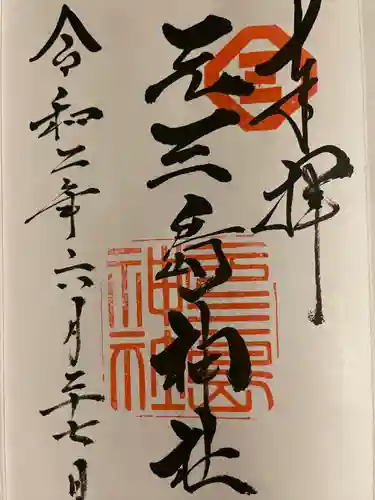 奉拝
三
元三島神社
令和二年六月二十七日